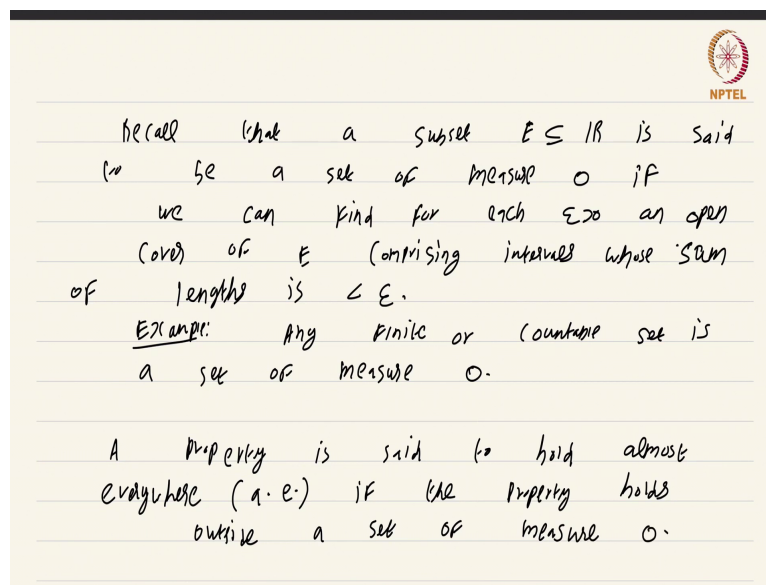 NPTEL
Recall that a subset E ⊆ ℝ is said
to be a set of measure 0 if
we can find for each ε>0 an open
cover of E comprising intervals whose sum
of lengths is < ε.
Example: Any finite or countable set is
a set of measure 0.
A property is said to hold almost
everywhere (a.e.) if the property holds
outside a set of measure 0.